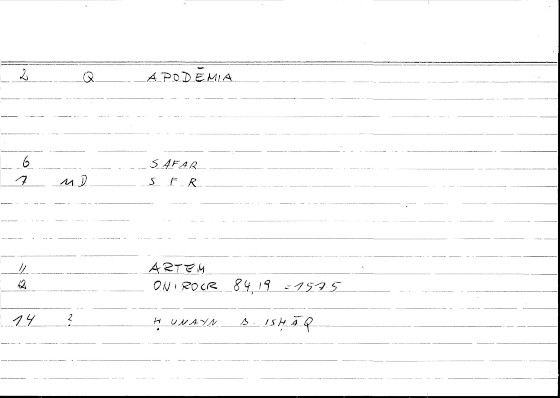 2 Q APODĒMIA
6 SAFAR
7 MD S F R
11 ARTEM
12 ONIROCR 84,19 =1575
14 ? ḤUNAYN B. ISḤĀQ